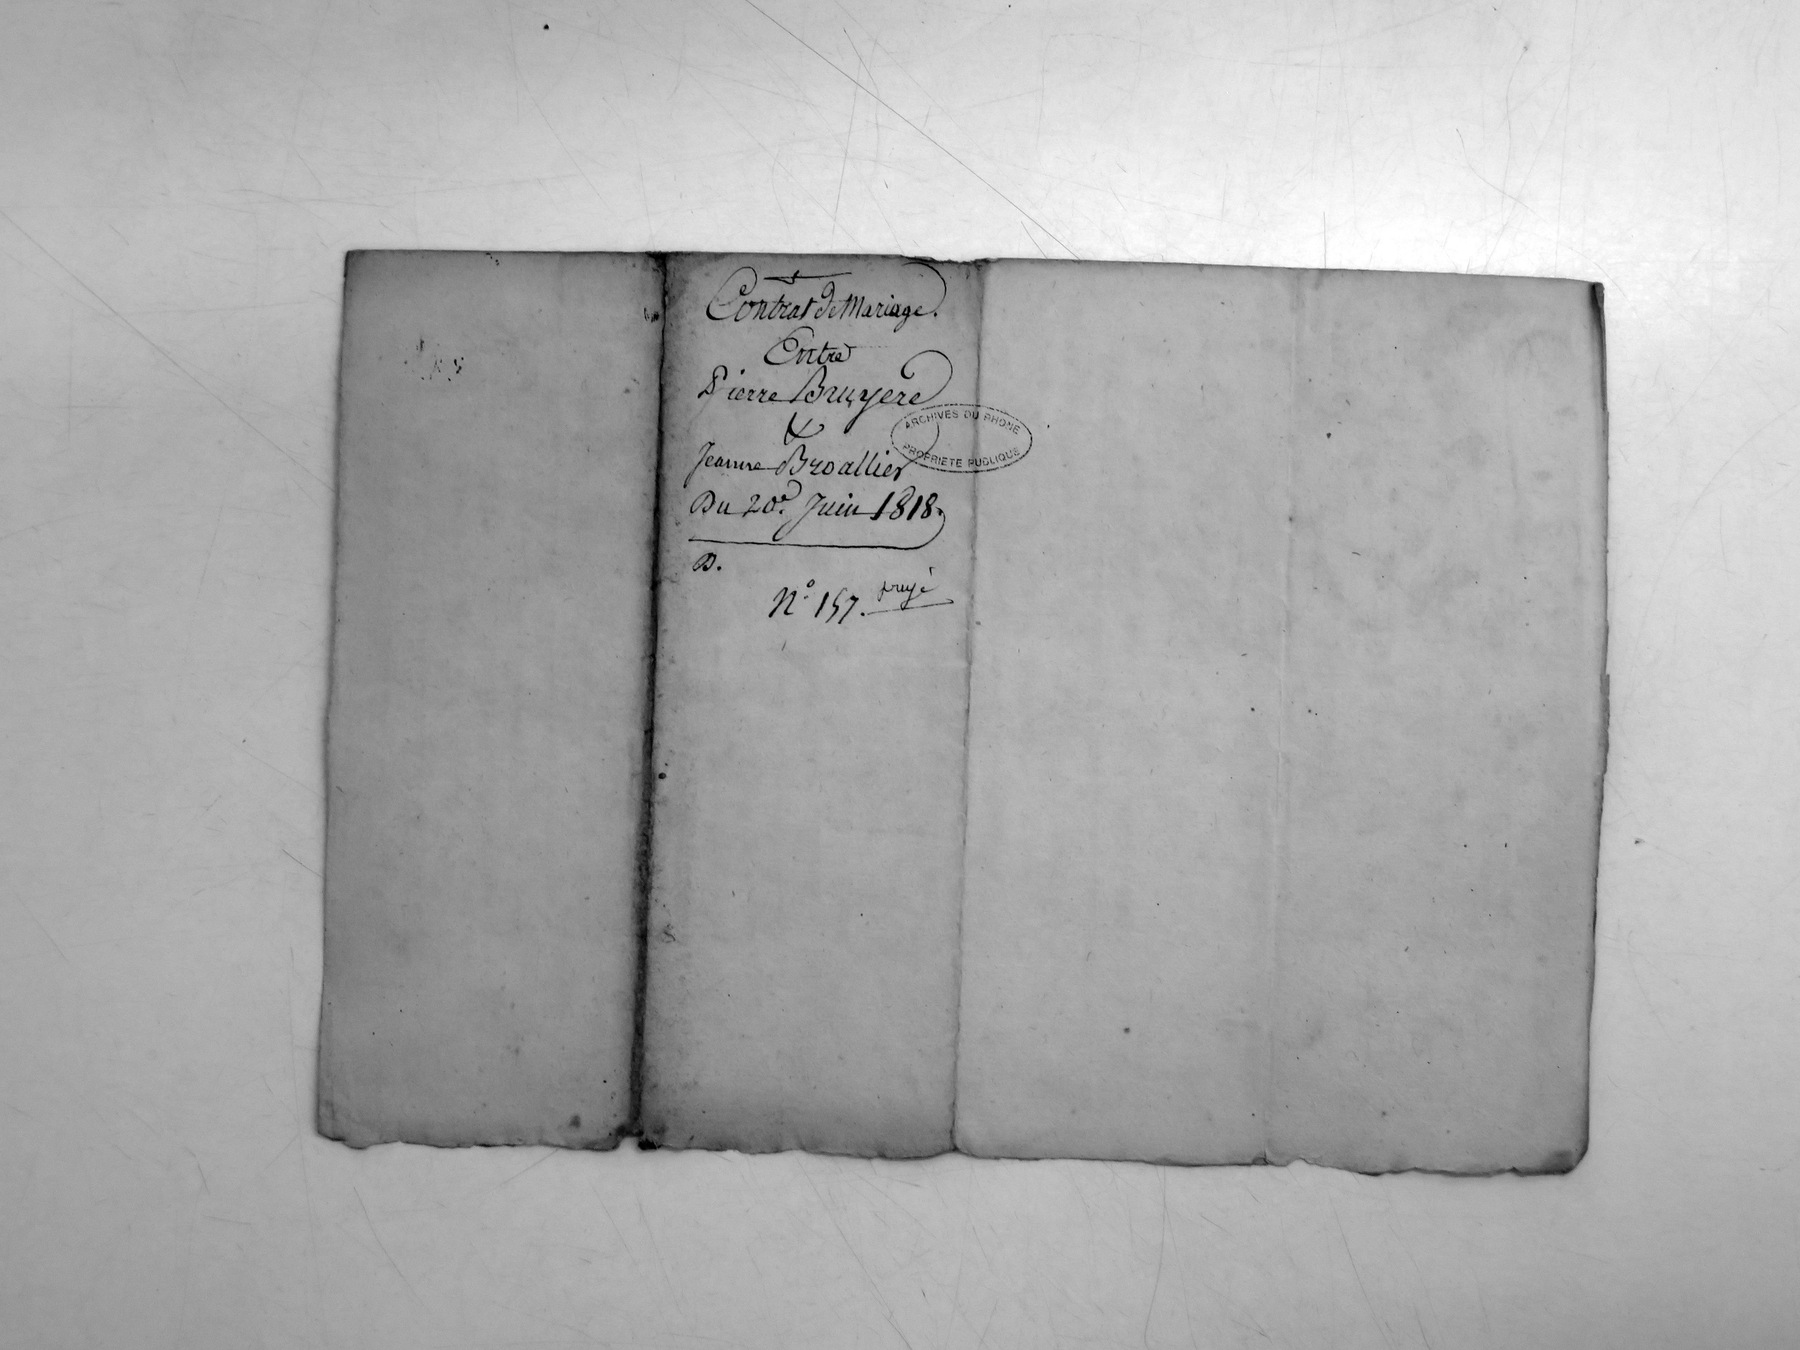 Contrat de Mariage.
Entre
Pierre Bruyere
&
Jeanne Broallier
Du 20e. Juin 1818.
D.
N.o 157.
ARCHIVES DU RHONE
PROPRIETE PUBLIQUE